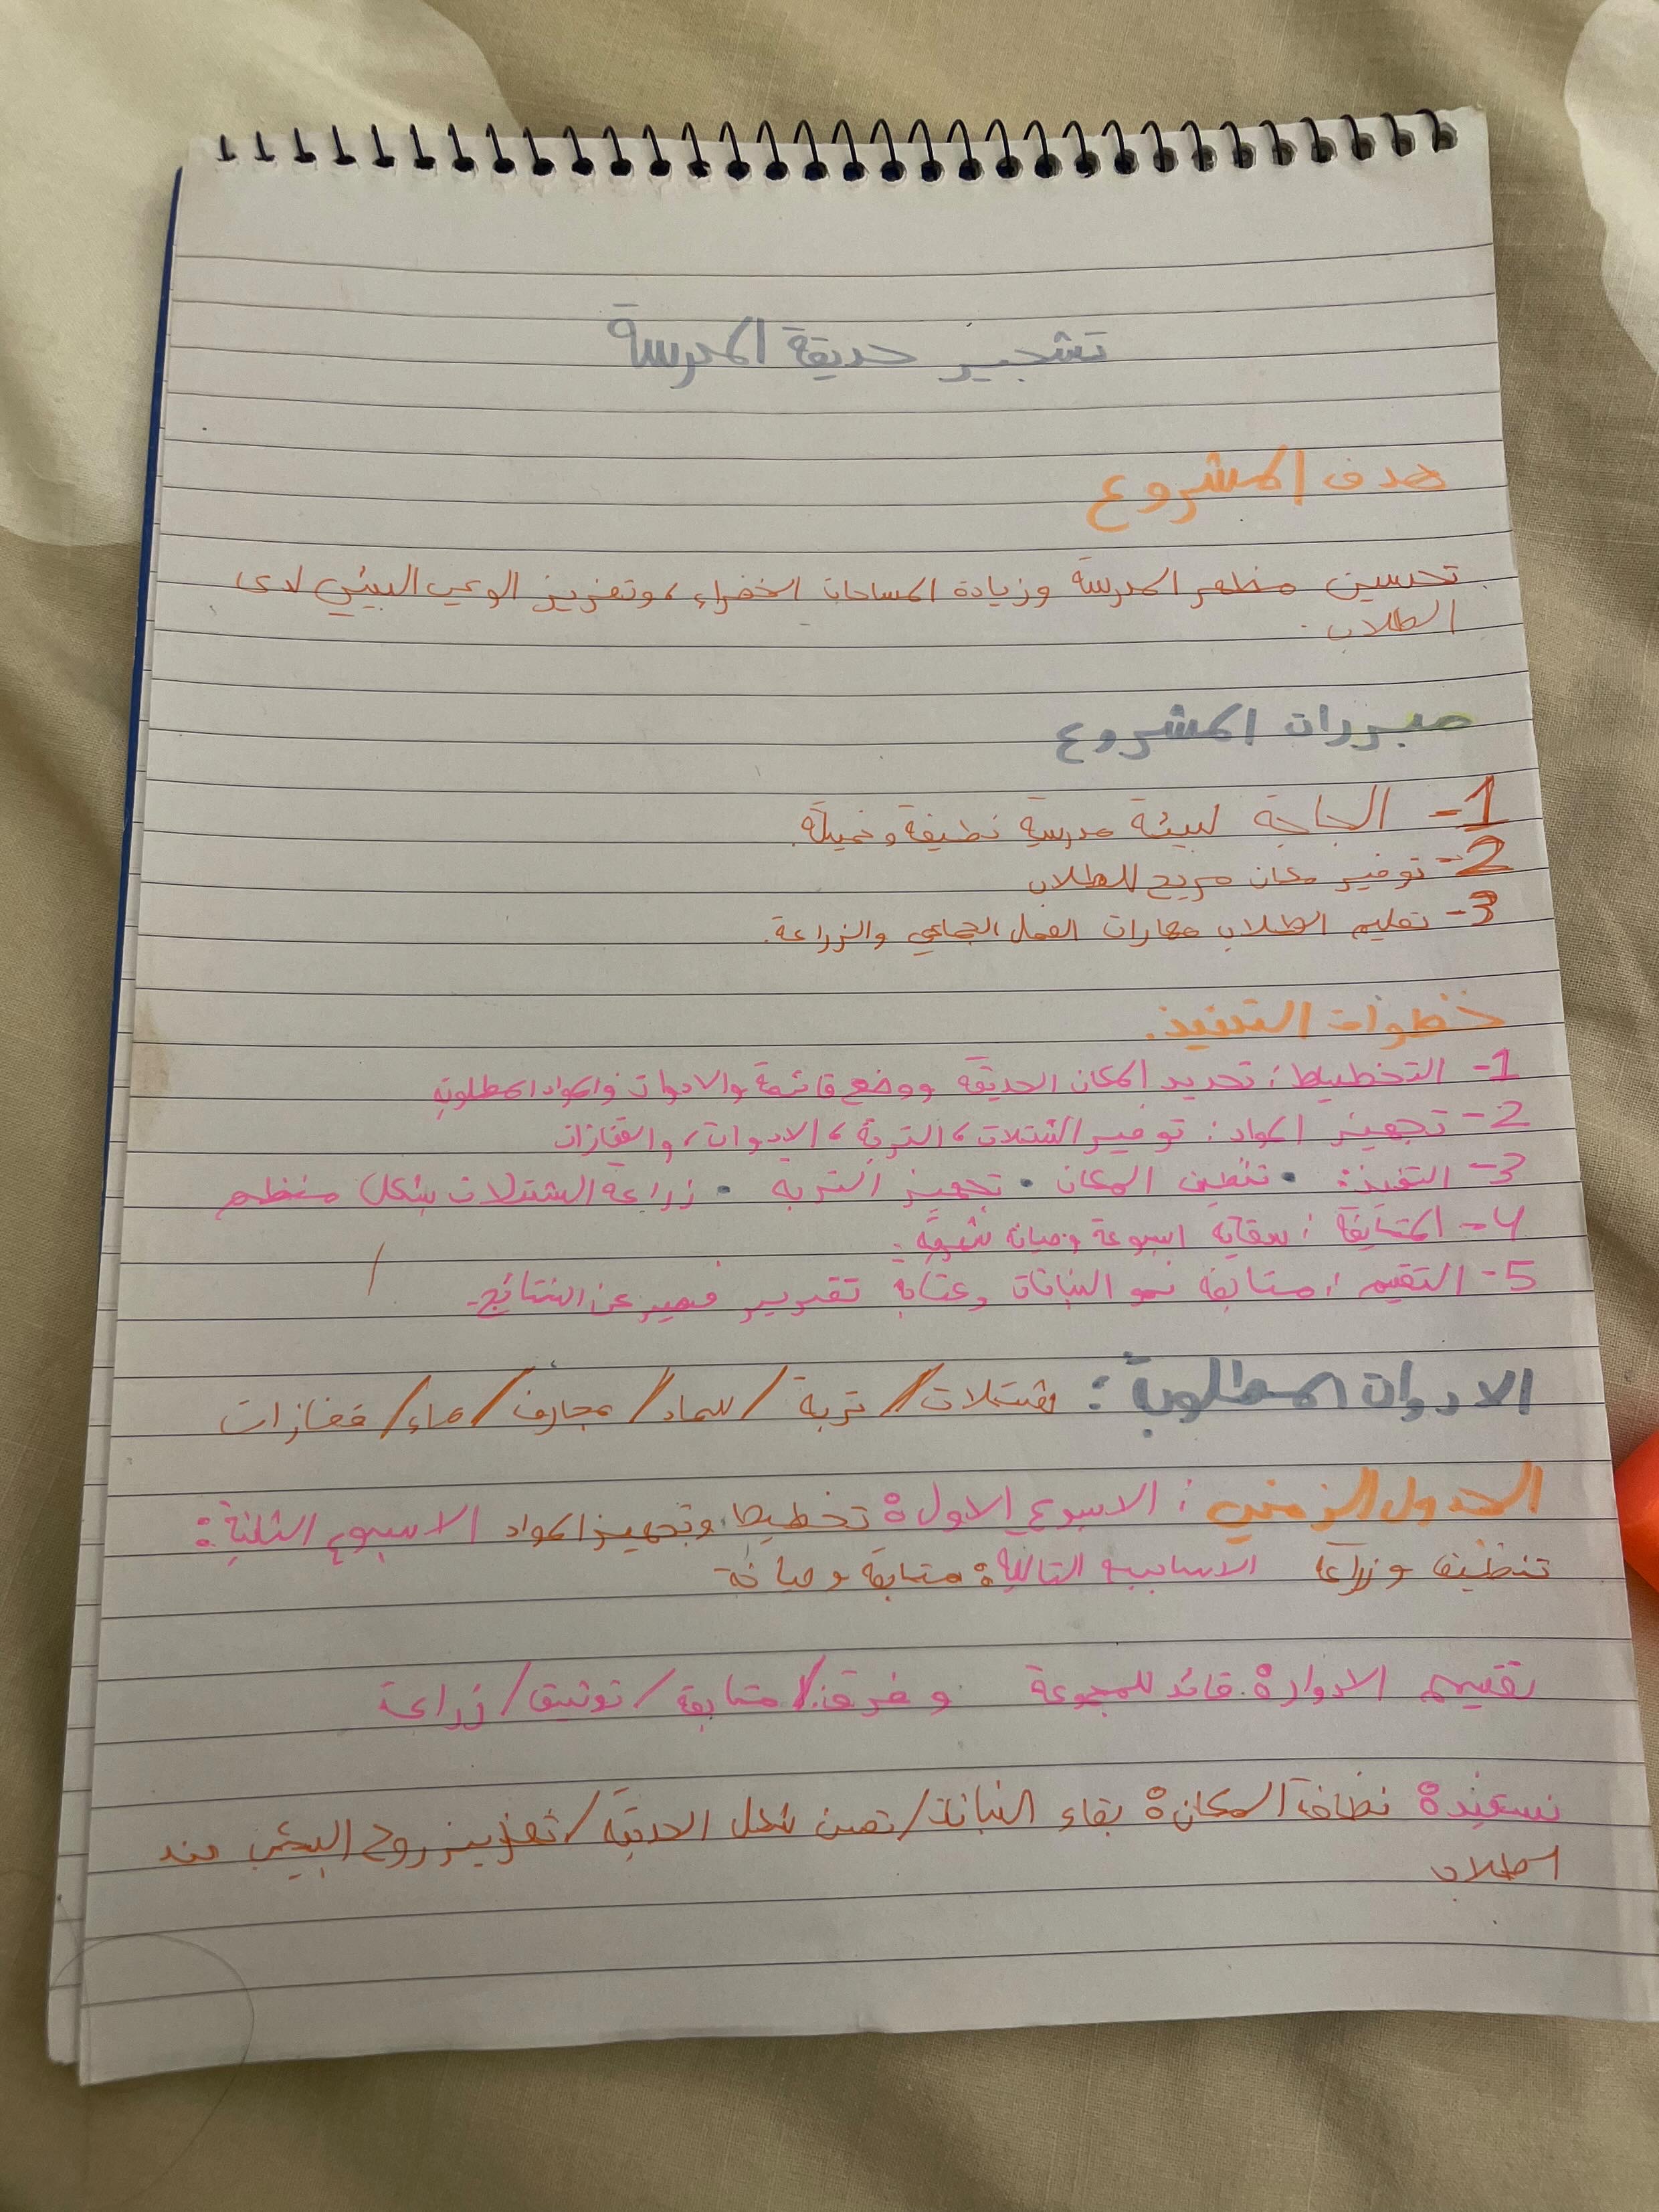 تشجير حديقة المدرسة
هدف المشروع
تحسين مظهر المدرسة وزيادة المساحات الخضراء، وتعزيز الوعي البيئي لدى
الطلاب.
مبررات المشروع
1- الحاجة لبيئة مدرسية نظيفة وجميلة.
2- توفير مكان مريح للطلاب
3- تعليم الطلاب مهارات العمل الجماعي والزراعة.
خطوات التنفيذ.
1- التخطيط: تحديد المكان الحديقة ووضع قائمة والادوات والمواد المطلوبة
2- تجهيز المواد: توفير الشتلات، التربة، الادوات، والقفازات
3- التنفيذ: • تنظيف المكان • تجهيز التربه • زراعة الشتلات بشكل منظم
4- المتابعة: اسبوعة وصيانة
5- التقيم: متابعة نمو النباتات تقرير قصير عن النتائج.
الادوات المطلوبة: شتلات / تربة / سماد / مجارف / ماء / قفازات
الجدول الزمني: الاسبوع الاول: تخطيط وتجهيز المواد الاسبوع الثانية:
تنظيف و الاسابيع التالية: متابعة وصيانة
تقسيم الادوار: قائد للمجموعة و متابعة / توثيق / زراعة
نظافة المكان: بقاء / شكل الحديقة / تعزيز روح البيئي عند
الطلاب